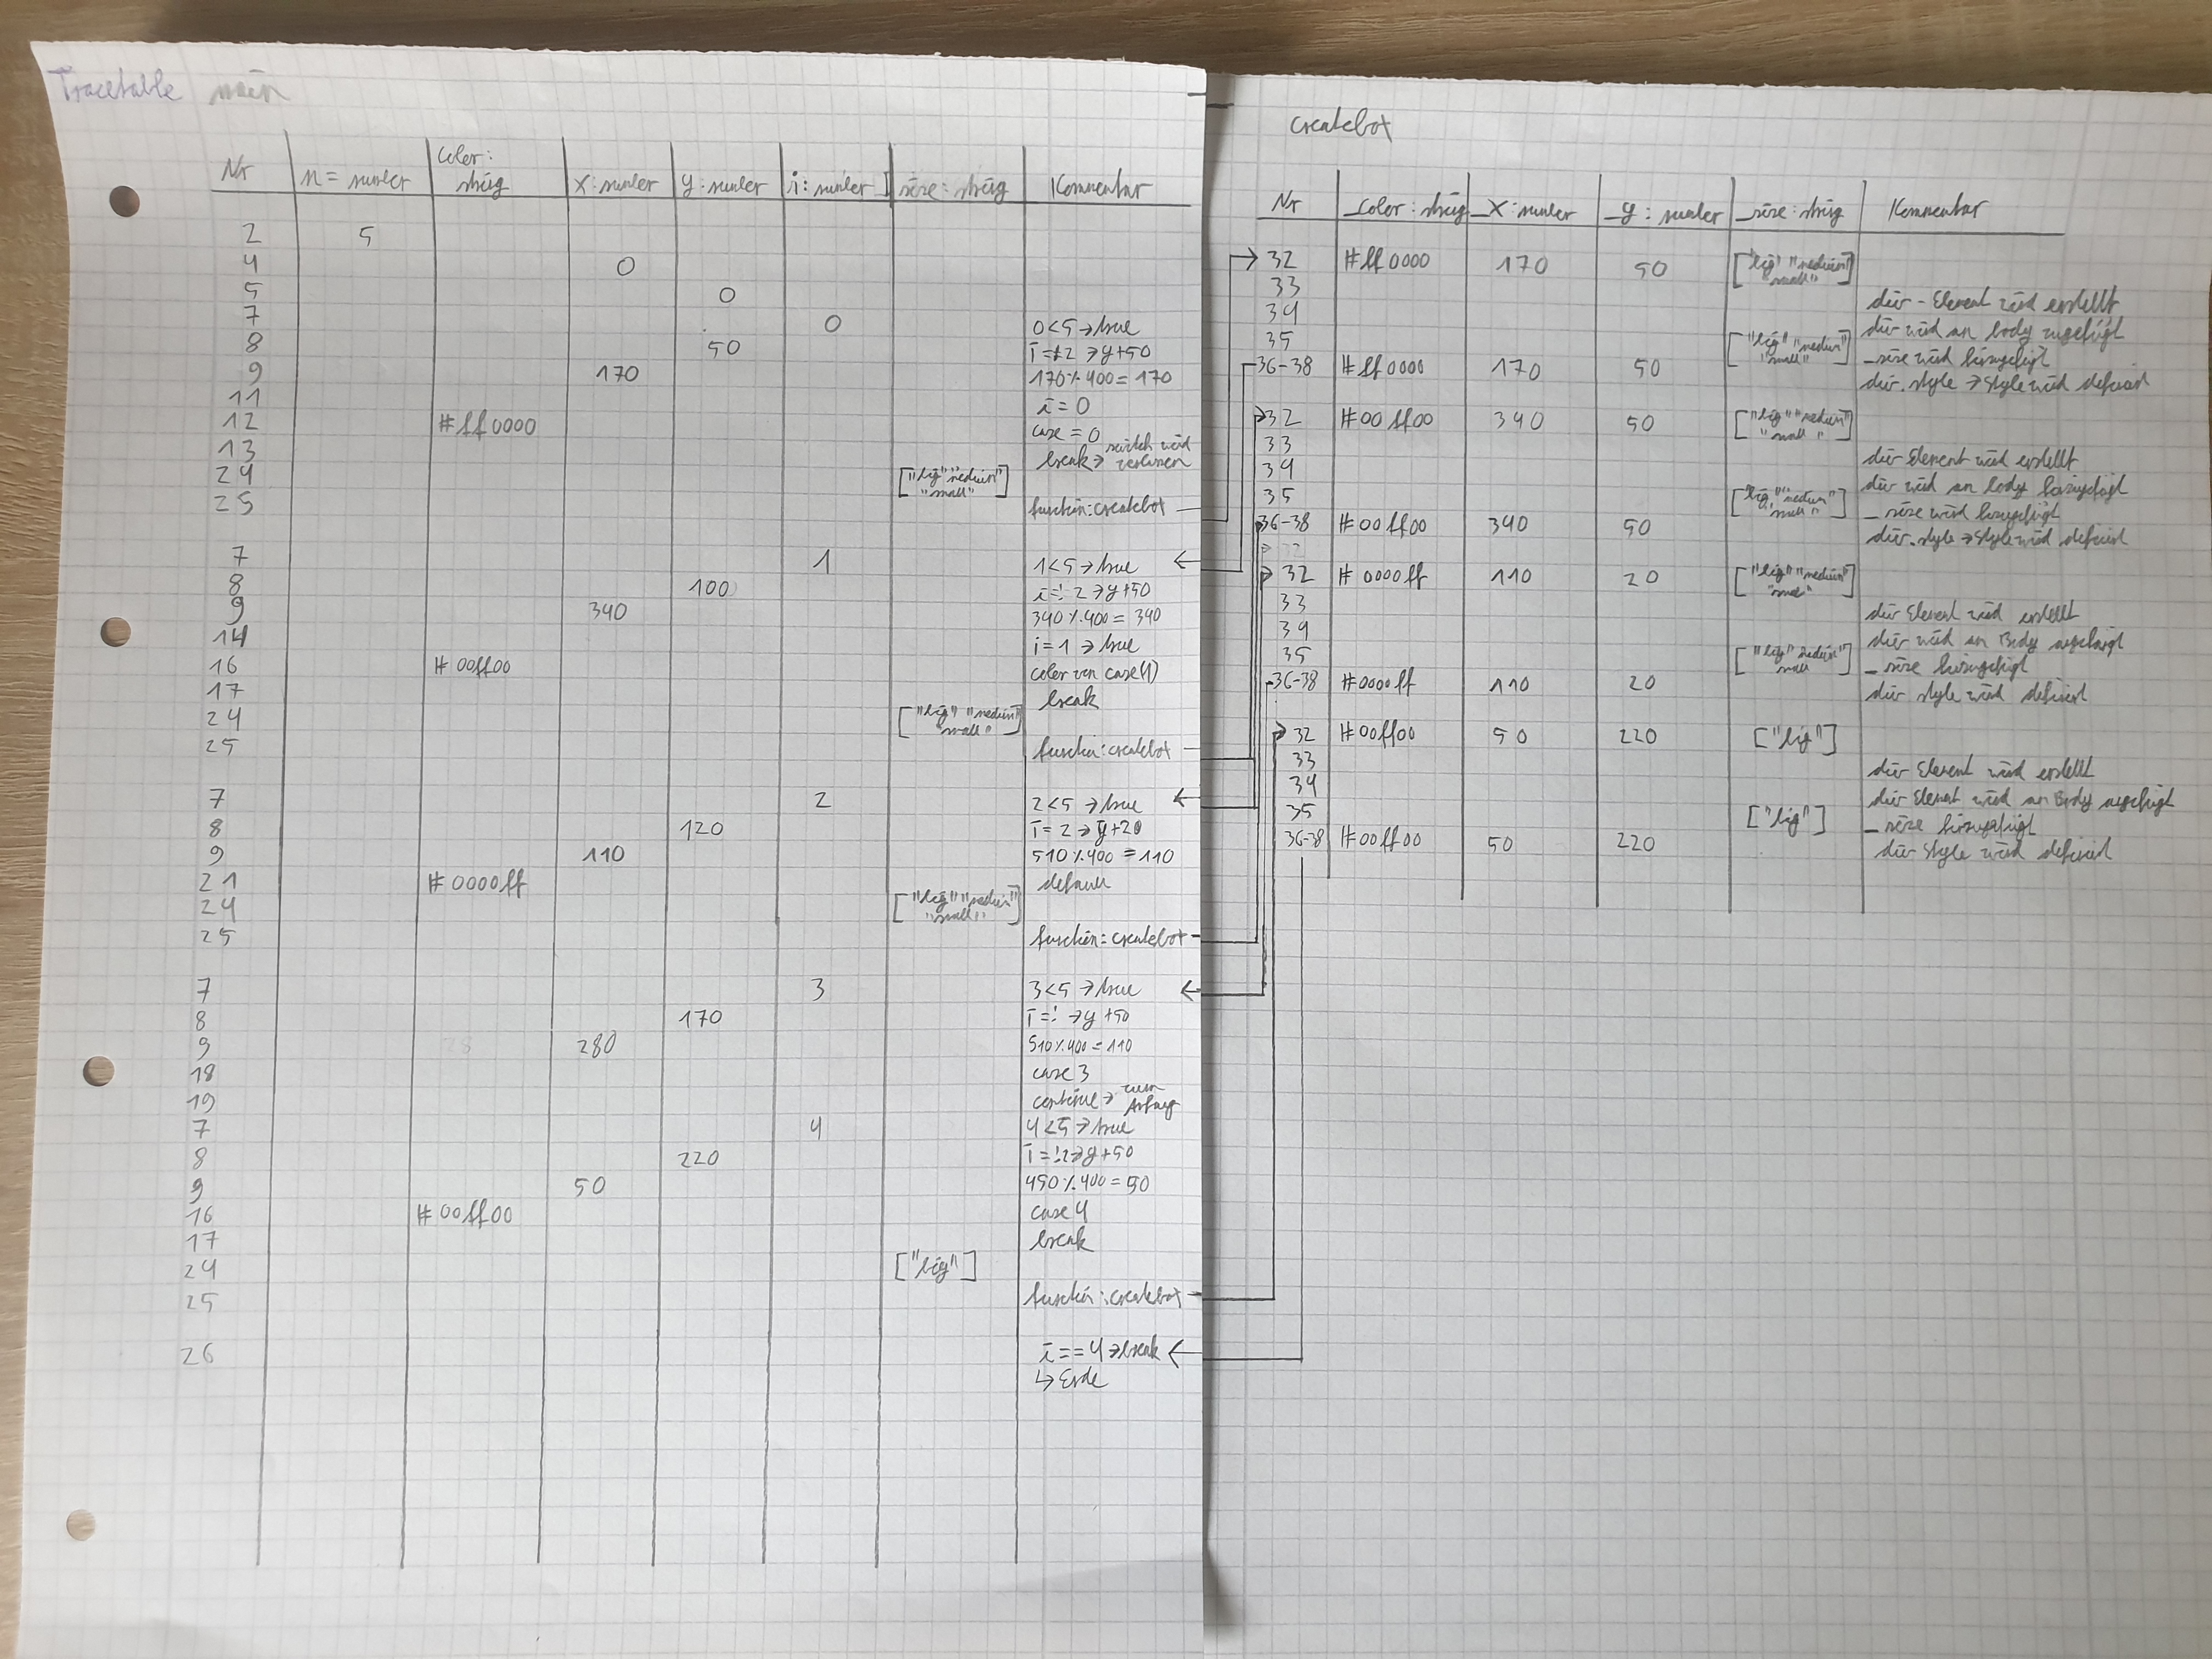 Tracetable main
Nr n = number color: string x: number y: number i: number size: string Kommentar
2 5
4 0
5 0
7 0 0<5 → true
8 50 i =! 2 → y+50
9 170 170 % 400 = 170
11 i = 0
12 #ff0000 case = 0
13 break → switch wird verlassen
24 ["big" "medium" "small"]
25 function: createbox
7 1 1<5 → true
8 100 i =! 2 → y+50
9 340 340 % 400 = 340
14 i = 1 → true
16 #00ff00 color von case(4)
17 break
24 ["big" "medium" "small"]
25 function: createbox
7 2 2<5 → true
8 120 i = 2 → y+20
9 110 510 % 400 = 110
21 #0000ff default
24 ["big" "medium" "small"]
25 function: createbox
7 3 3<5 → true
8 170 i =! → y+50
9 280 510 % 400 = 110
18 case 3
19 continue → zum Anfang
7 4 4<5 → true
8 220 i =! 2 → y+50
9 50 450 % 400 = 50
16 #00ff00 case 4
17 break
24 ["big"]
25 function: createbox
26 i == 4 → break
↳ Ende
createbox
Nr _color: string _x: number _y: number _size: string Kommentar
32 #ff0000 170 50 ["big" "medium" "small"]
33 div-Element wird erstellt
34 div wird an body zugefügt
35 ["big" "medium" "small"] _size wird hinzugefügt
36-38 #ff0000 170 50 div.style → Style wird definiert
32 #00ff00 340 50 ["big" "medium" "small"]
33 div Element wird erstellt
34 div wird an body hinzugefügt
35 ["big" "medium" "small"] _size wird hinzugefügt
36-38 #00ff00 340 50 div.style → Style wird definiert
32 #0000ff 110 20 ["big" "medium"
33 div Element wird erstellt
34 div wird an Body angehängt
35 ["big" "medium" small] _size hinzugefügt
36-38 #0000ff 110 20 div style wird definiert
32 #00ff00 50 220 ["big"]
33 div Element wird erstellt
34 div Element wird an Body angehängt
35 ["big"] _size hinzugefügt
36-38 #00ff00 50 220 div Style wird definiert